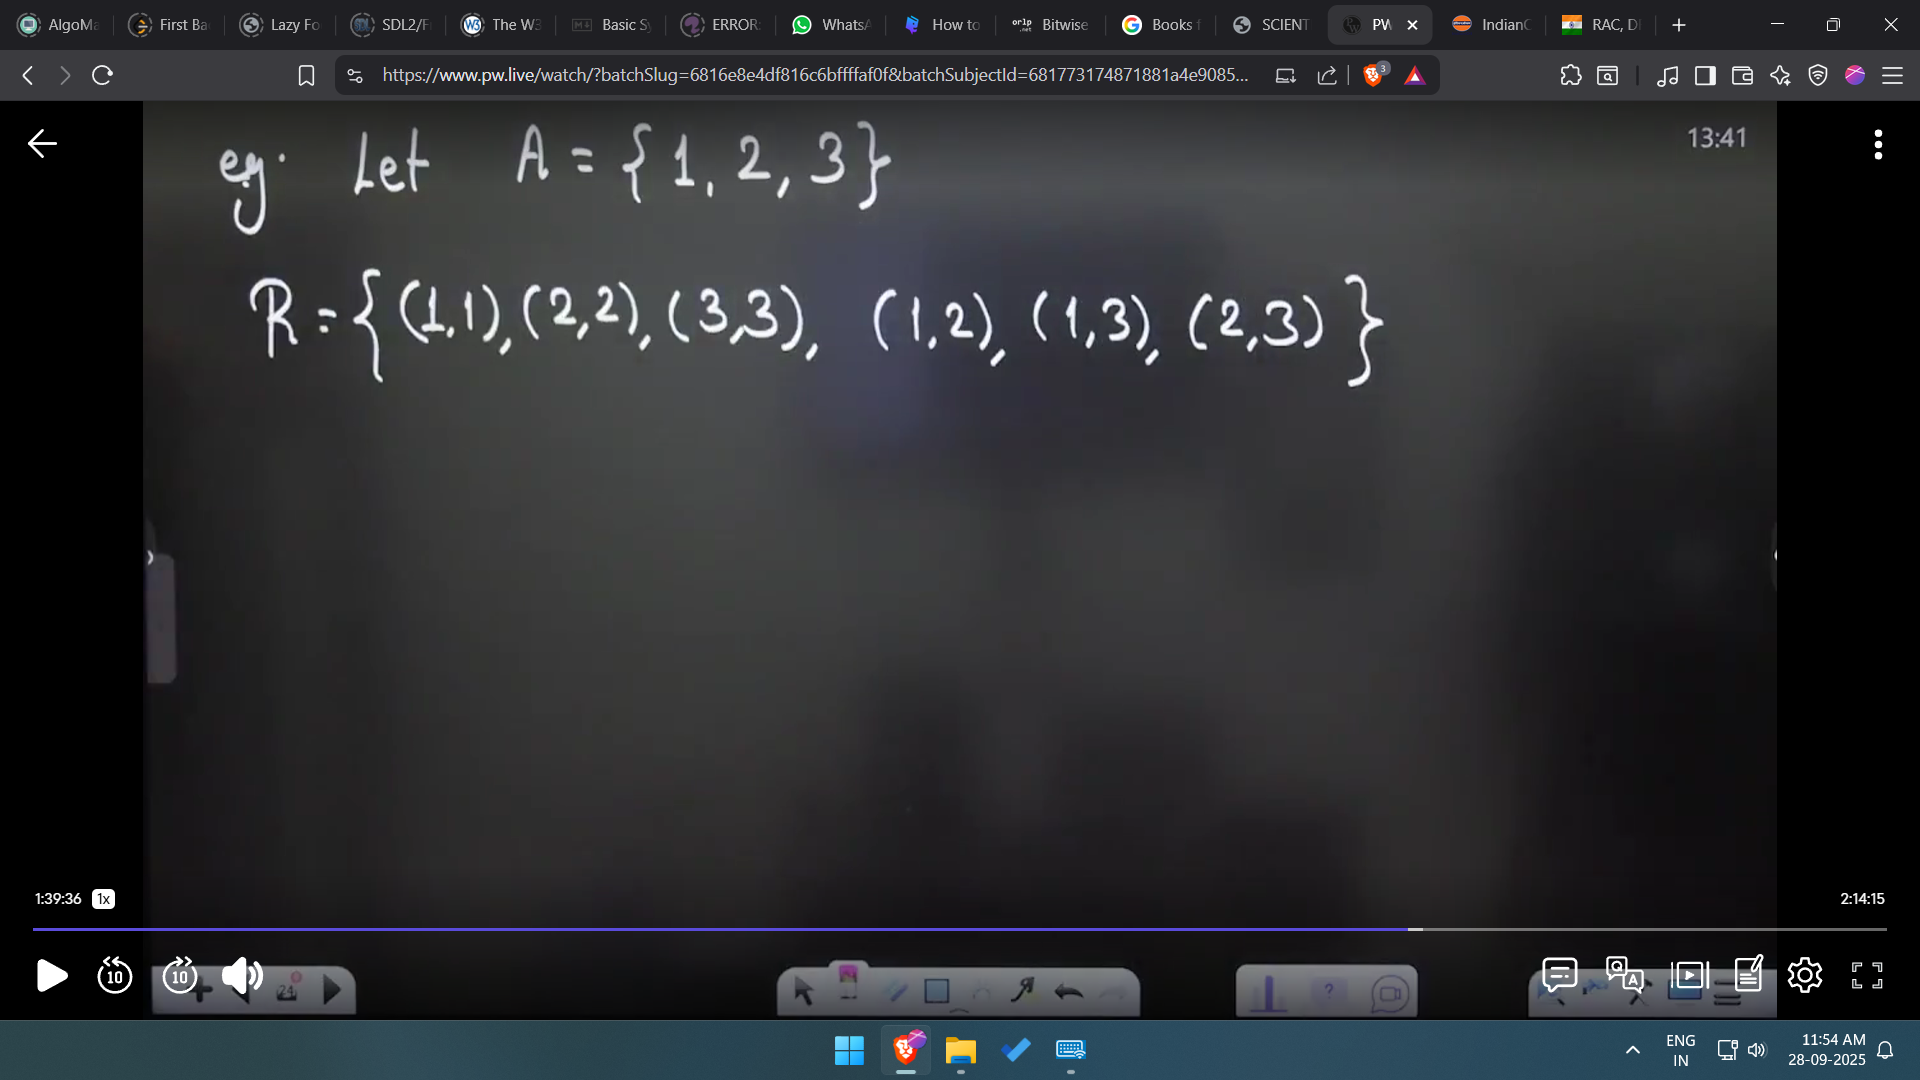 AlgoMa First Ba Lazy Fo SDL2/F The W3 Basic Sy ERROR: WhatsA How to Bitwise Books f SCIENT PW IndianO RAC, D
https://www.pw.live/watch/?batchSlug=6816e8e4df816c6bffffaf0f&batchSubjectId=681773174871881a4e9085... 3
13:41
eg. Let A = {1, 2, 3}
R = {(1,1), (2,2), (3,3), (1,2), (1,3), (2,3)}
1:39:36 1x 2:14:15
10 10 24 ?
ENG 11:54 AM
IN 28-09-2025